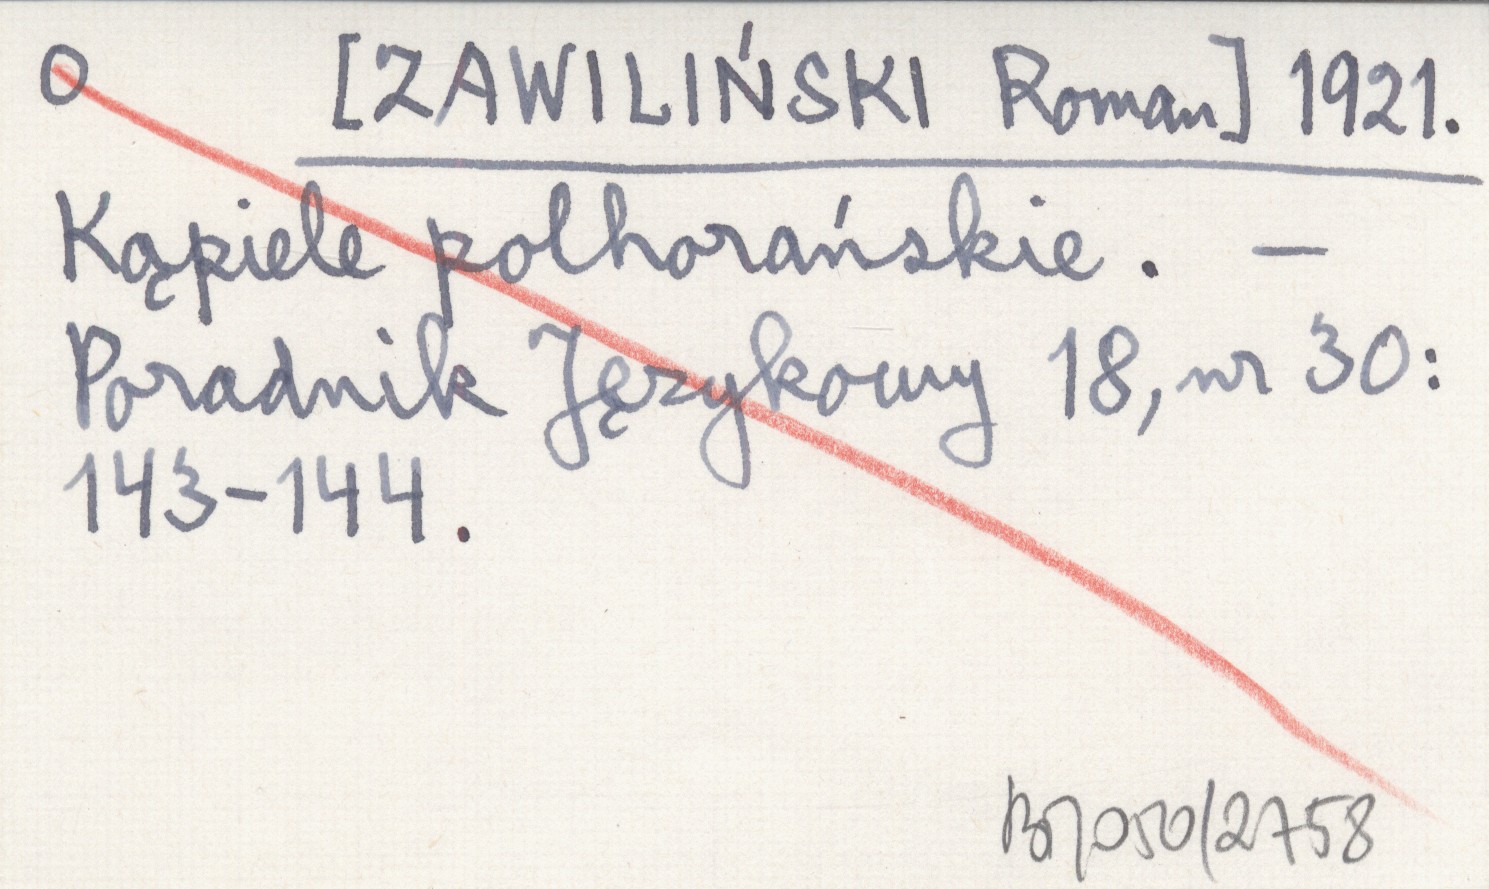 O [ZAWILIŃSKI Roman] 1921.
Kąpiele polhorańskie. –
Poradnik Językowy 18, nr 30:
143–144.
050/2758